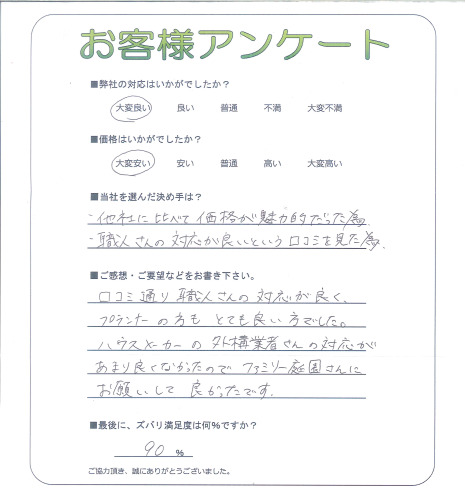 お客様アンケート
■弊社の対応はいかがでしたか？
大変良い 良い 普通 不満 大変不満
■価格はいかがでしたか？
大変安い 安い 普通 高い 大変高い
■当社を選んだ決め手は？
・他社に比べて価格が魅力的だった為。
・職人さんの対応が良いという口コミを見た為。
■ご感想・ご要望などをお書き下さい。
口コミ通り職人さんの対応が良く、
プランナーの方もとても良い方でした。
ハウスメーカーの外構業者さんの対応が
あまり良くなかったのでファミリー庭園さんに
お願いして良かったです。
■最後に、ズバリ満足度は何%ですか？
90 %
ご協力頂き、誠にありがとうございました。